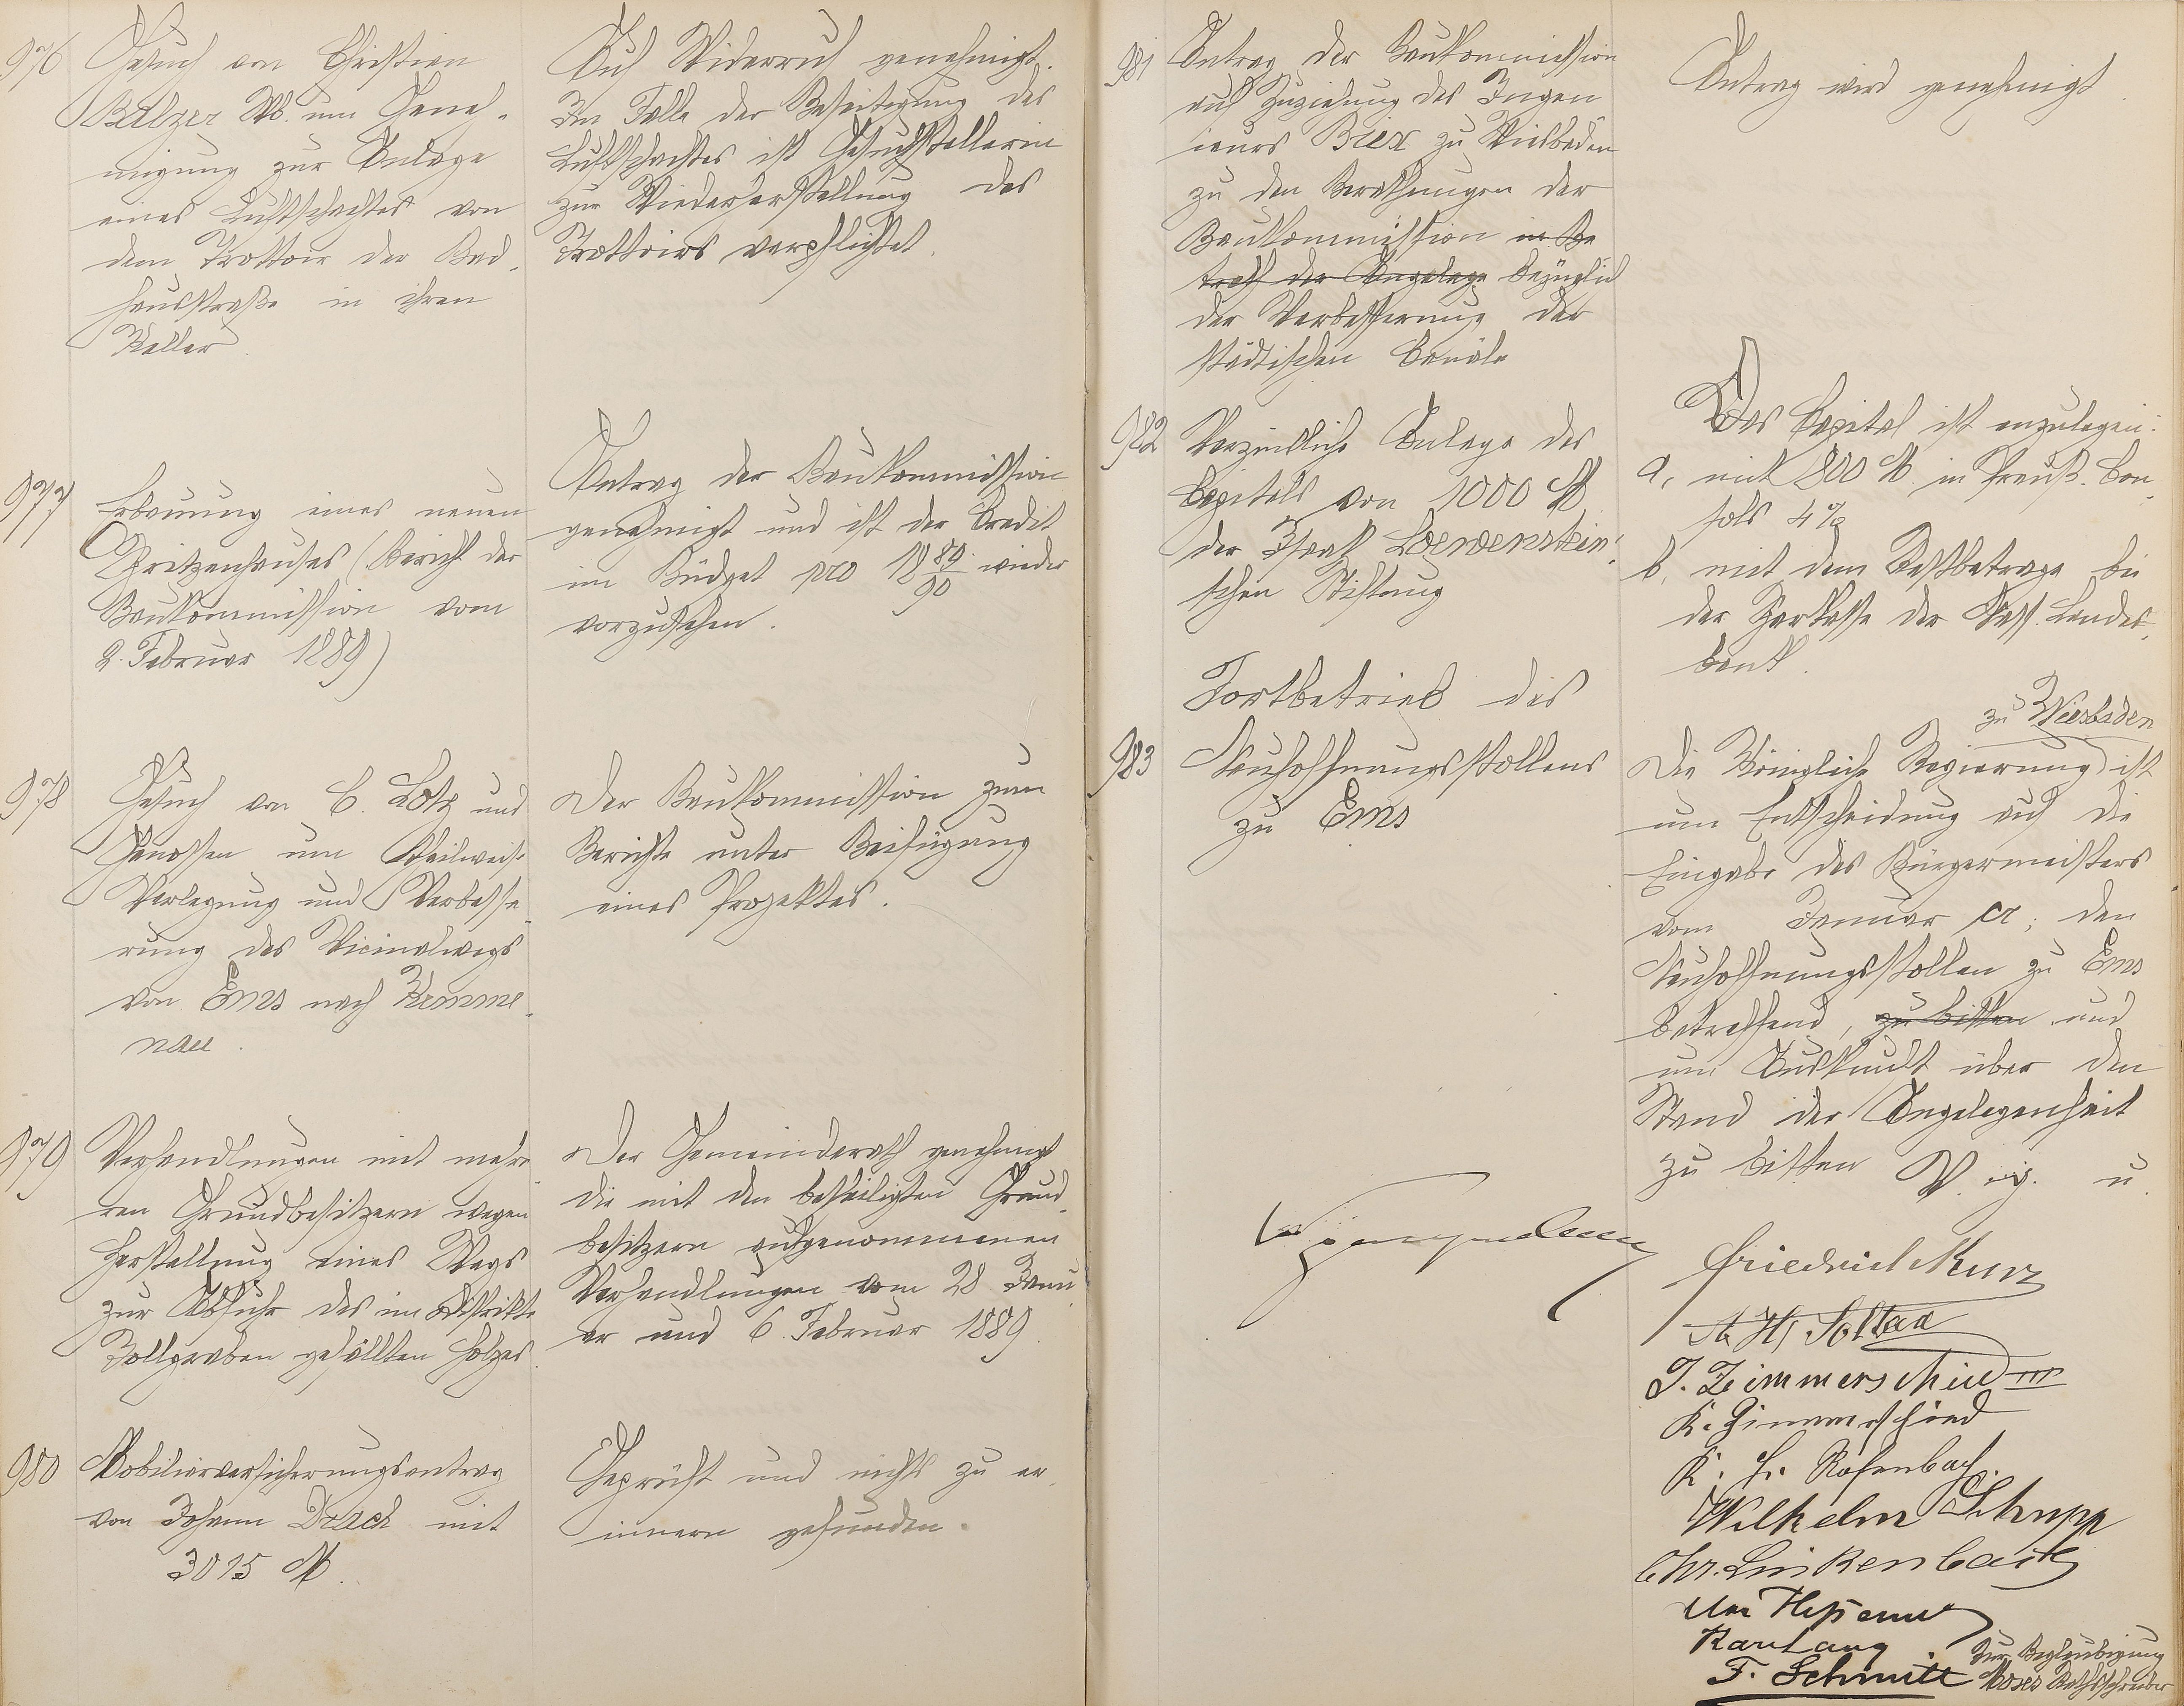 976
Gesuch von Christian
Balzer Wb. um Geneh-
migung zur Anlage
eines Luftschachtes von
dem Trottoir der Bad-
hausstraße in ihren
Keller.
Auf Widerruf genehmigt.
Im Falle der Beseitigung des
Luftschachtes ist Gesuchstellerin
zur Wiederherstellung des
Trottoirs verpflichtet.
977
Erbauung eines neuen
Spritzenhauses (Bericht der
Baukommission vom
2. Februar 1889)
Antrag der Baukommission
genehmigt und ist der Credit
im Büdget pro 1889/90 wieder
vorzusehen.
978
Gesuch von C. Lotz und
Genossen um theilweise
Verlegung und Verbesse-
rung des Vicinalwegs
von Ems nach Kemme-
nau.
Der Baukommission zum
Berichte unter Beifügung
eines Projektes.
979
Verhandlungen mit mehre-
ren Grundbesitzern wegen
Herstellung eines Wegs
zur Abfuhr des im Distrikte
Zollgraben gefällten Holzes.
Der Gemeinderath genehmigt
die mit den betheiligten Grund-
besitzern aufgenommenen
Verhandlungen vom 28 Janu-
ar und 6. Februar 1889.
980
Mobiliarversicherungsantrag
von Johann Drach mit
3015 M.
Geprüft und nichts zu er-
innern gefunden.
981
Antrag der Baukommission
auf Zuziehung des Ingen
ieurs Brix zu Wiesbaden
zu den Berathungen der
Baukommission in Be
treff der Angelege bezüglich
der Verbesserung der
städtischen Canäle
Antrag wird genehmigt.
982
Verzinsliche Anlage des
Capitals von 1000 M.
der Isaak Loewenstein'
schen Stiftung
Das Capital ist anzulegen:
a, mit 800 M. in Preuß. Con-
sols 4%
b, mit dem Restbetrage bei
der Sparkasse der Nass. Landes-
bank.
983
Fortbetrieb des
Neuhoffnungsstollens
zu Ems
zu Wiesbaden
Die Königliche Regierung ist
um Entscheidung auf die
Eingabe des Bürgermeisters
vom Januar cr., den
Neuhoffnungsstollen zu Ems
betreffend, zu bitten und
um Auskunft über den
Stand der Angelegenheit
zu bitten V. g. u.
Friedrich Kurz
J. Zimmerschied III
K. Zimmerschied
K. H. Rosenbach.
Wilhelm Schupp
Chr. Linkenbach
Karl Lang
F. Schmitt
Zur Beglaubigung
Moses Rathsschreiber